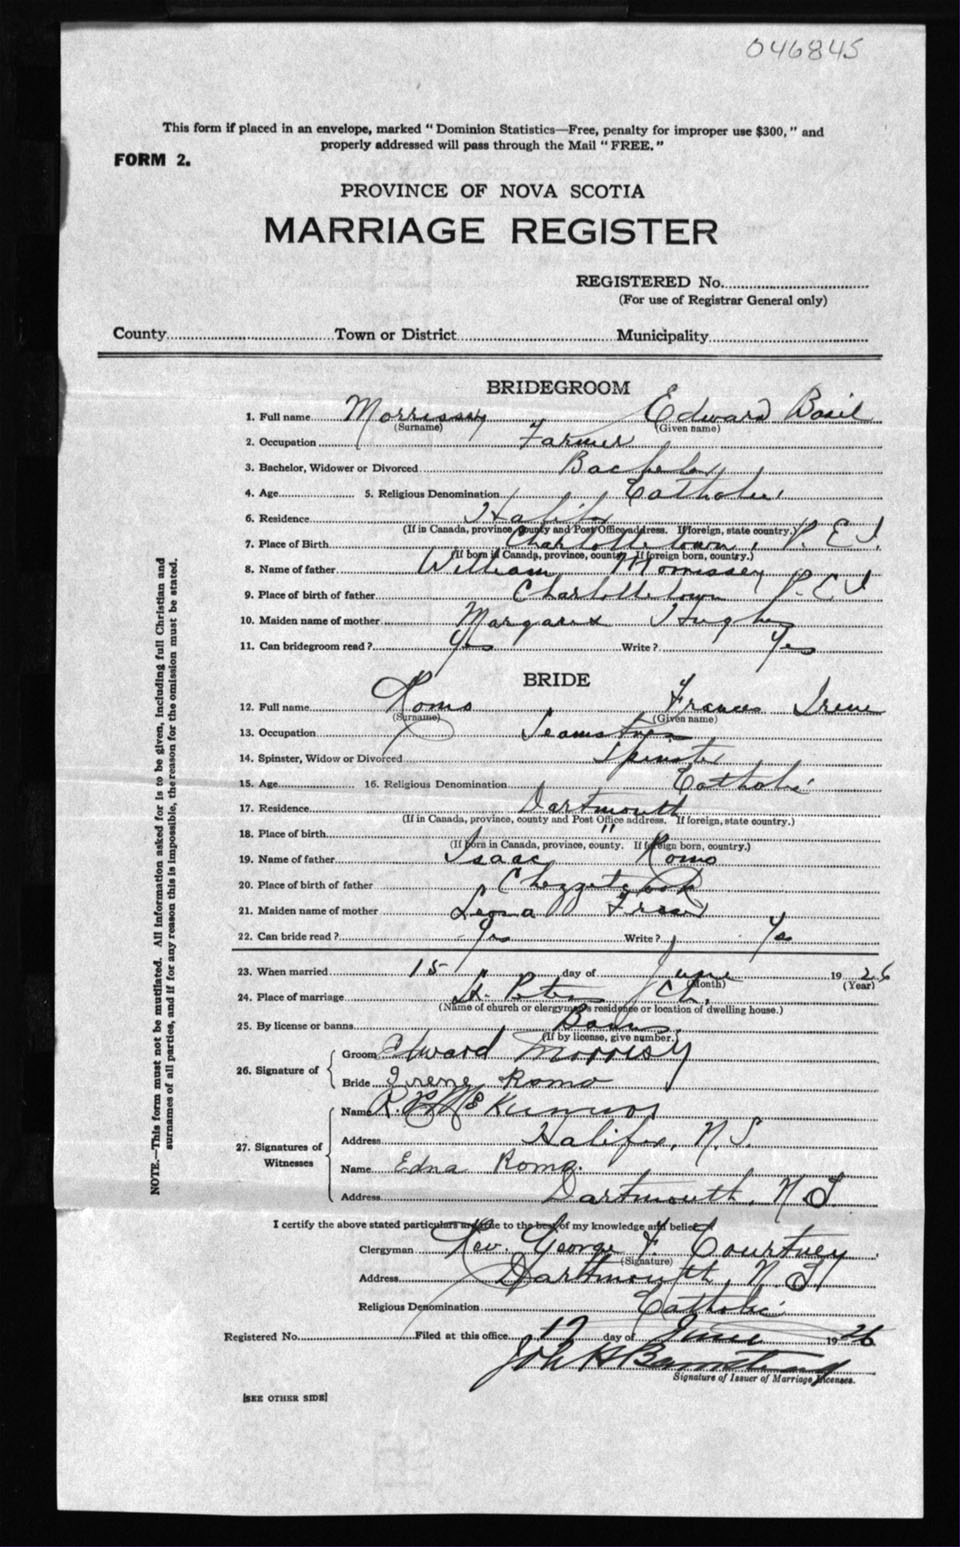 046845
This form if placed in an envelope, marked "Dominion Statistics—Free, penalty for improper use $300," and
properly addressed will pass through the Mail "FREE."
FORM 2.
PROVINCE OF NOVA SCOTIA
MARRIAGE REGISTER
REGISTERED No.
(For use of Registrar General only)
County Town or District Municipality
BRIDEGROOM
1. Full name Morrissey Edward Basil
(Surname) (Given name)
2. Occupation Farmer
3. Bachelor, Widower or Divorced Bachelor
4. Age 5. Religious Denomination Catholic
6. Residence Halifax
(If in Canada, province, county and Post Office address. If foreign, state country.)
7. Place of Birth Charlottetown, P.E.I.
(If born in Canada, province, county. If foreign born, country.)
8. Name of father William Morrissey
9. Place of birth of father Charlottetown P.E.I
10. Maiden name of mother Margaret Hughes
11. Can bridegroom read? Yes Write? Yes
BRIDE
12. Full name Romo Frances Irene
(Surname) (Given name)
13. Occupation Seamstress
14. Spinster, Widow or Divorced Spinster
15. Age 16. Religious Denomination Catholic
17. Residence Dartmouth
(If in Canada, province, county and Post Office address. If foreign, state country.)
18. Place of birth "
(If born in Canada, province, county. If foreign born, country.)
19. Name of father Isaac Romo
20. Place of birth of father Chezzetcook
21. Maiden name of mother Leona
22. Can bride read? Yes Write? Yes
23. When married 15 day of June 1926
(Month) (Year)
24. Place of marriage St. Peters Ch.
(Name of church or clergyman's residence or location of dwelling house.)
25. By license or banns Banns.
(If by license, give number.)
26. Signature of
Groom Edward Morrisy
Bride Irene Romo
27. Signatures of Witnesses
Name R.
Address Halifax, N.S.
Name Edna Romo.
Address Dartmouth, N.S.
I certify the above stated particulars are true to the best of my knowledge and belief.
Clergyman Rev. George F. Courtney
(Signature)
Address Dartmouth, N.S.
Religious Denomination Catholic
Registered No. Filed at this office 17 day of June 1926
Signature of Issuer of Marriage Licenses.
[SEE OTHER SIDE]
NOTE.—This form must not be mutilated. All information asked for is to be given, including full Christian and
surnames of all parties, and if for any reason this is impossible, the reason for the omission must be stated.